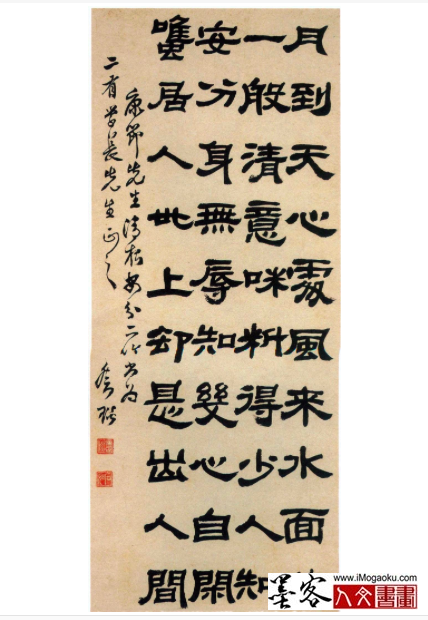 月到天心處風來水面
一般清意味料得少人知
安分身無辱知幾心自閑
雖居人世上卻是出人間
康節先生清夜安分二吟書為
二有學長先生正之
墨客
www.iMogaoku.com
人文書畫